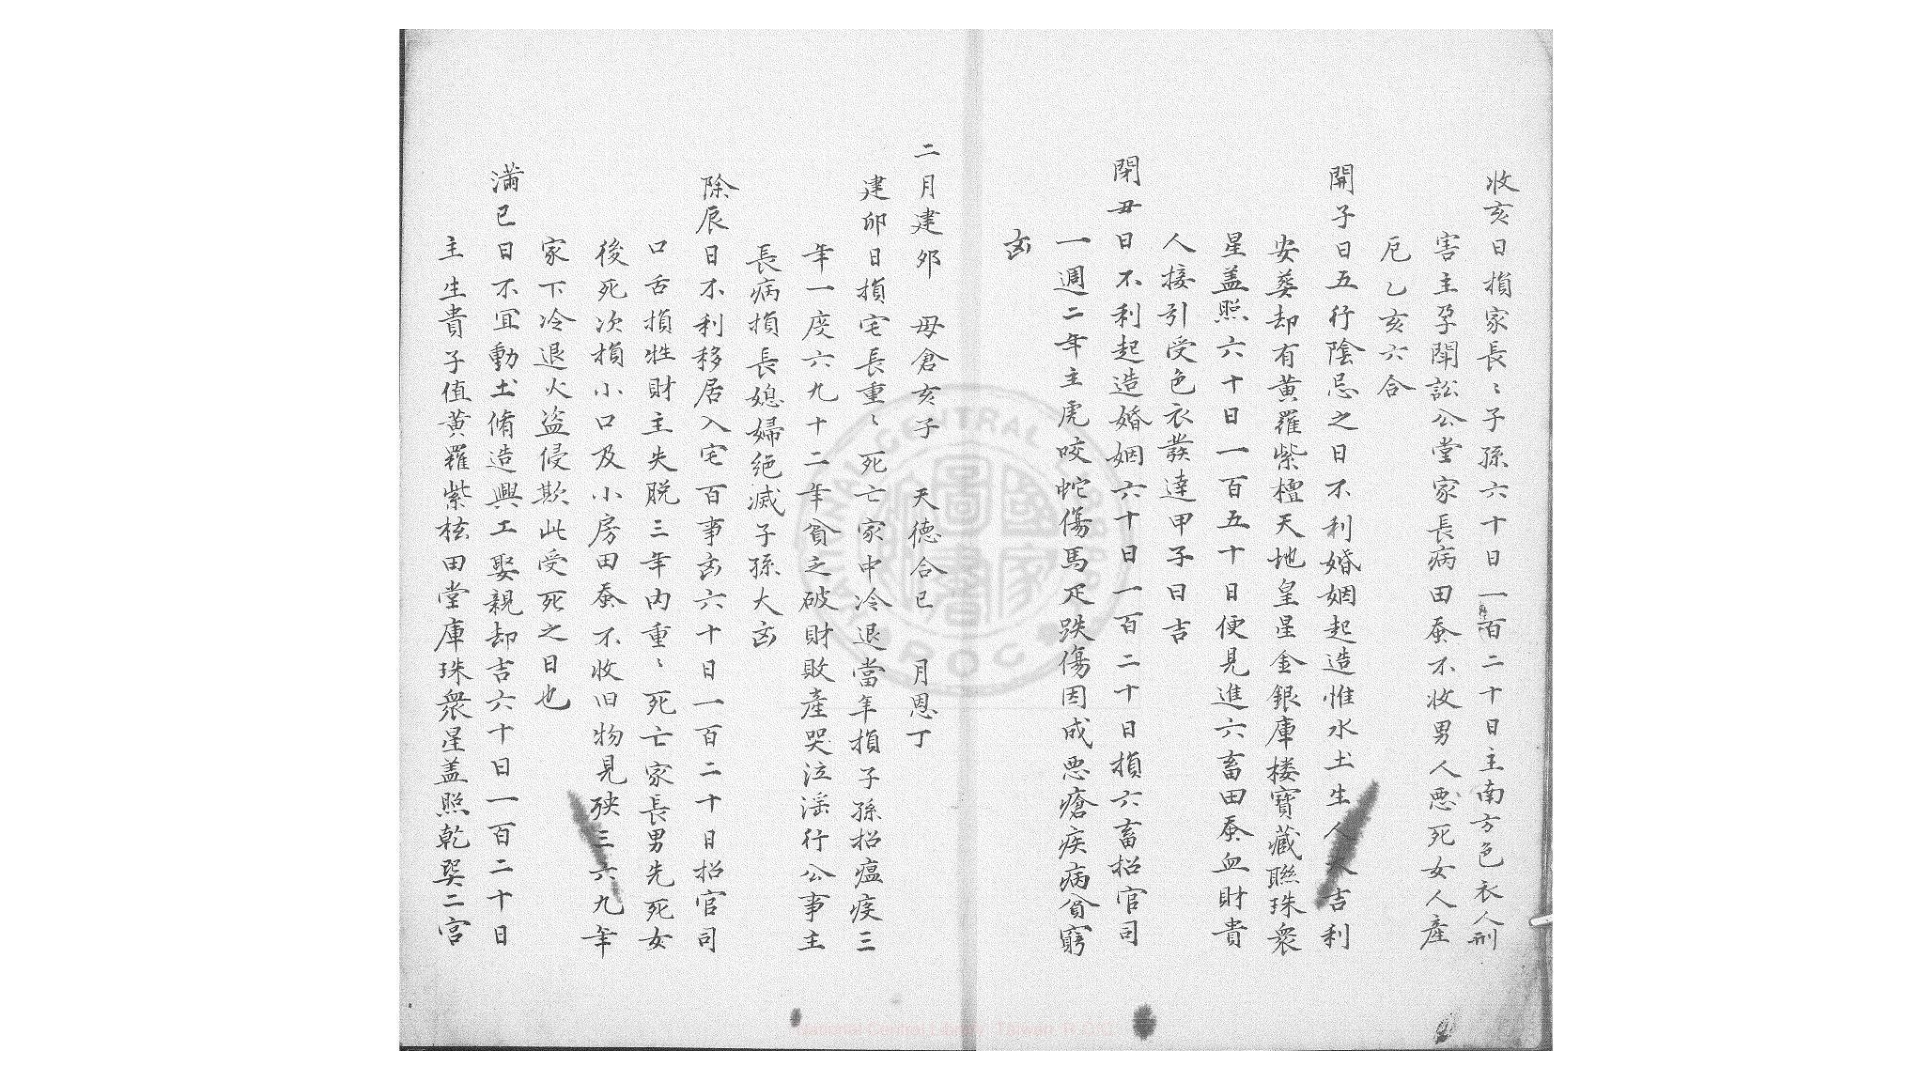 收亥日損家長〻子孫六十日一百二十日主南方色衣人刑
害主孕鬧訟公堂家長病田蚕不收男人悪死女人産
厄乙亥六合
開子日五行陰忌之日不利婚姻起造惟水土生人大吉利
安葬却有黄羅紫檀天地皇星金銀庫楼寶藏聯珠衆
星盖照六十日一百五十日便見進六畜田蚕血財貴
人接引受色衣發達甲子日吉
閉丑日不利起造婚姻六十日一百二十日損六畜招官司
一週二年主虎咬蛇傷馬疋跌傷因成悪瘡疾病貧窮
㐫
二月建夘 母倉亥子 天德合巳 月恩丁
建卯日損宅長重〻死亡家中冷退當年損子孫招瘟疫三
年一度六九十二年貧乏破財敗産哭泣淫行公事主
長病損長媳婦絶滅子孫大㐫
除辰日不利移居入宅百事㐫六十日一百二十日招官司
口舌損牲財主失脱三年内重〻死亡家長男先死女
後死次損小口及小房田蚕不收旧物見殃三六九年
家下冷退火盗侵欺此受死之日也
満巳日不冝動土脩造興工娶親却吉六十日一百二十日
主生貴子值黄羅紫柱田堂庫珠衆星盖照乾巽二宮
National Central Library, Taiwan (R.O.C)
NATIONAL CENTRAL LIBRARY
國家圖書館
ROC